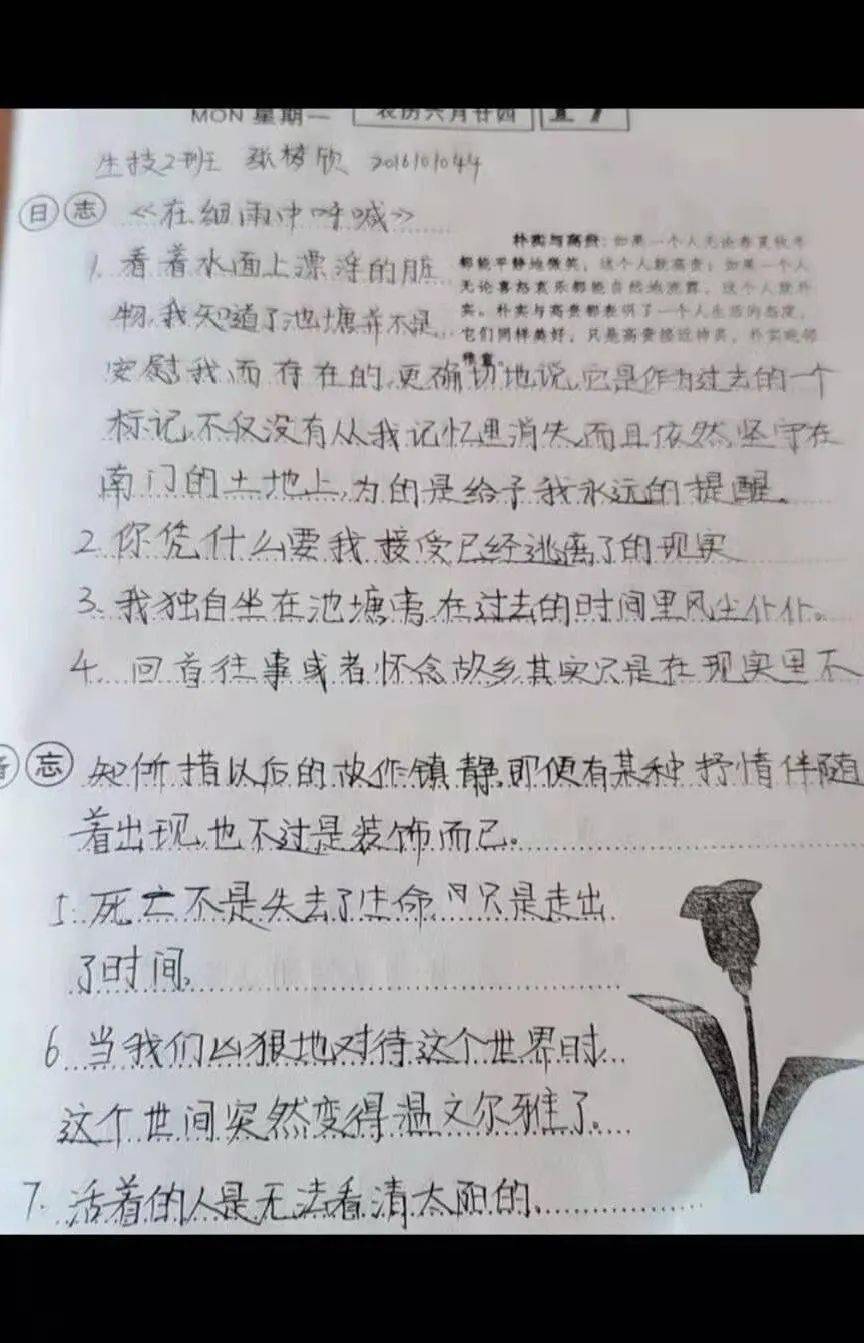 MON 星期一 农历六月廿四
生技2班 张梦欣 2016101044
日志 《在细雨中呼喊》
朴实与高贵:如果一个人无论春夏秋冬
都能平静地微笑,这个人就高贵;如果一个人
无论喜怒哀乐都能自然地流露,这个人就朴
实。朴实与高贵都表明了一个人生活的态度,
它们同样美好,只是高贵接近神灵,朴实毗邻
1. 看着水面上漂浮的脏
物,我知道了池塘并不是
安慰我而存在的,更确切地说,它是作为过去的一个
标记,不仅没有从我记忆里消失,而且依然坚守在
南门的土地上,为的是给予我永远的提醒。
2. 你凭什么要我接受已经逃离了的现实
3. 我独自坐在池塘旁,在过去的时间里风尘仆仆。
4. 回首往事或者怀念故乡,其实只是在现实里不
备忘 知所措以后的故作镇静,即便有某种抒情伴随
着出现,也不过是装饰而已。
5. 死亡不是失去了生命,只是走出
了时间,
6. 当我们凶狠地对待这个世界时
这个世间突然变得温文尔雅了。
7. 活着的人是无法看清太阳的.